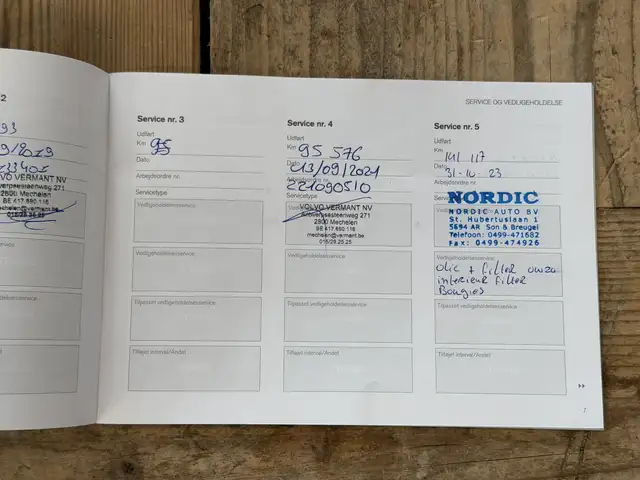 2
93
9/2019
VOLVO VERMANT NV
2800 Mechelen
BE 417.690.116
mechelen@vermant.be
015/29.25.25
SERVICE OG VEDLIGEHOLDELSE
Service nr. 3
Udført
Km 95
Dato
Arbejdsordre nr.
Servicetype
Vedligeholdelsesservice
Tilpasset vedligeholdelsesservice
Tilføjet interval/Andet
Service nr. 4
Udført
Km 95 576
Dato 13/09/2021
Arbejdsordre nr.
221090510
Servicetype
VOLVO VERMANT NV
Antwerpsesteenweg 271
2800 Mechelen
BE 417.690.116
mechelen@vermant.be
015/29.25.25
Vedligeholdelsesservice
Tilpasset vedligeholdelsesservice
Tilføjet interval/Andet
Service nr. 5
Udført
Km 141 117
Dato 31-10-23
Arbejdsordre nr.
NORDIC
NORDIC AUTO BV
St. Hubertuslaan 1
5694 AR Son & Breugel
Telefoon: 0499-471682
Fax: 0499-474926
Vedligeholdelsesservice
olie + filter
interieur filter
Bougies
Tilpasset vedligeholdelsesservice
Tilføjet interval/Andet
7